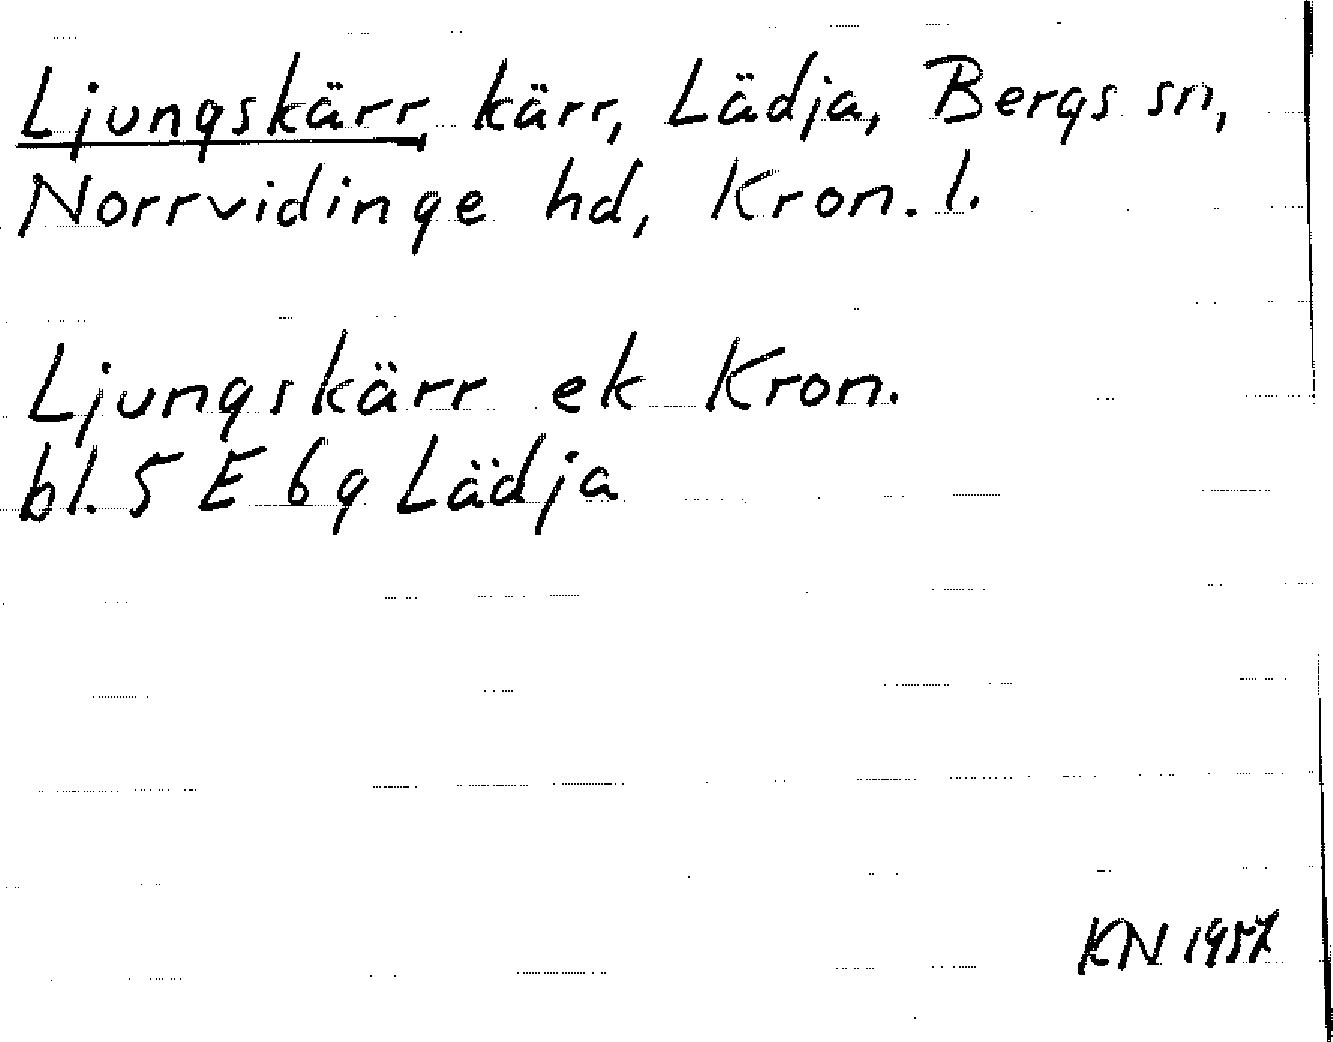 Ljungskärr, kärr, Lädja, Bergs sn,
Norrvidinge hd, Kron. l.
Ljungskärr ek Kron.
bl. 5 E 6 g Lädja
KN 1957